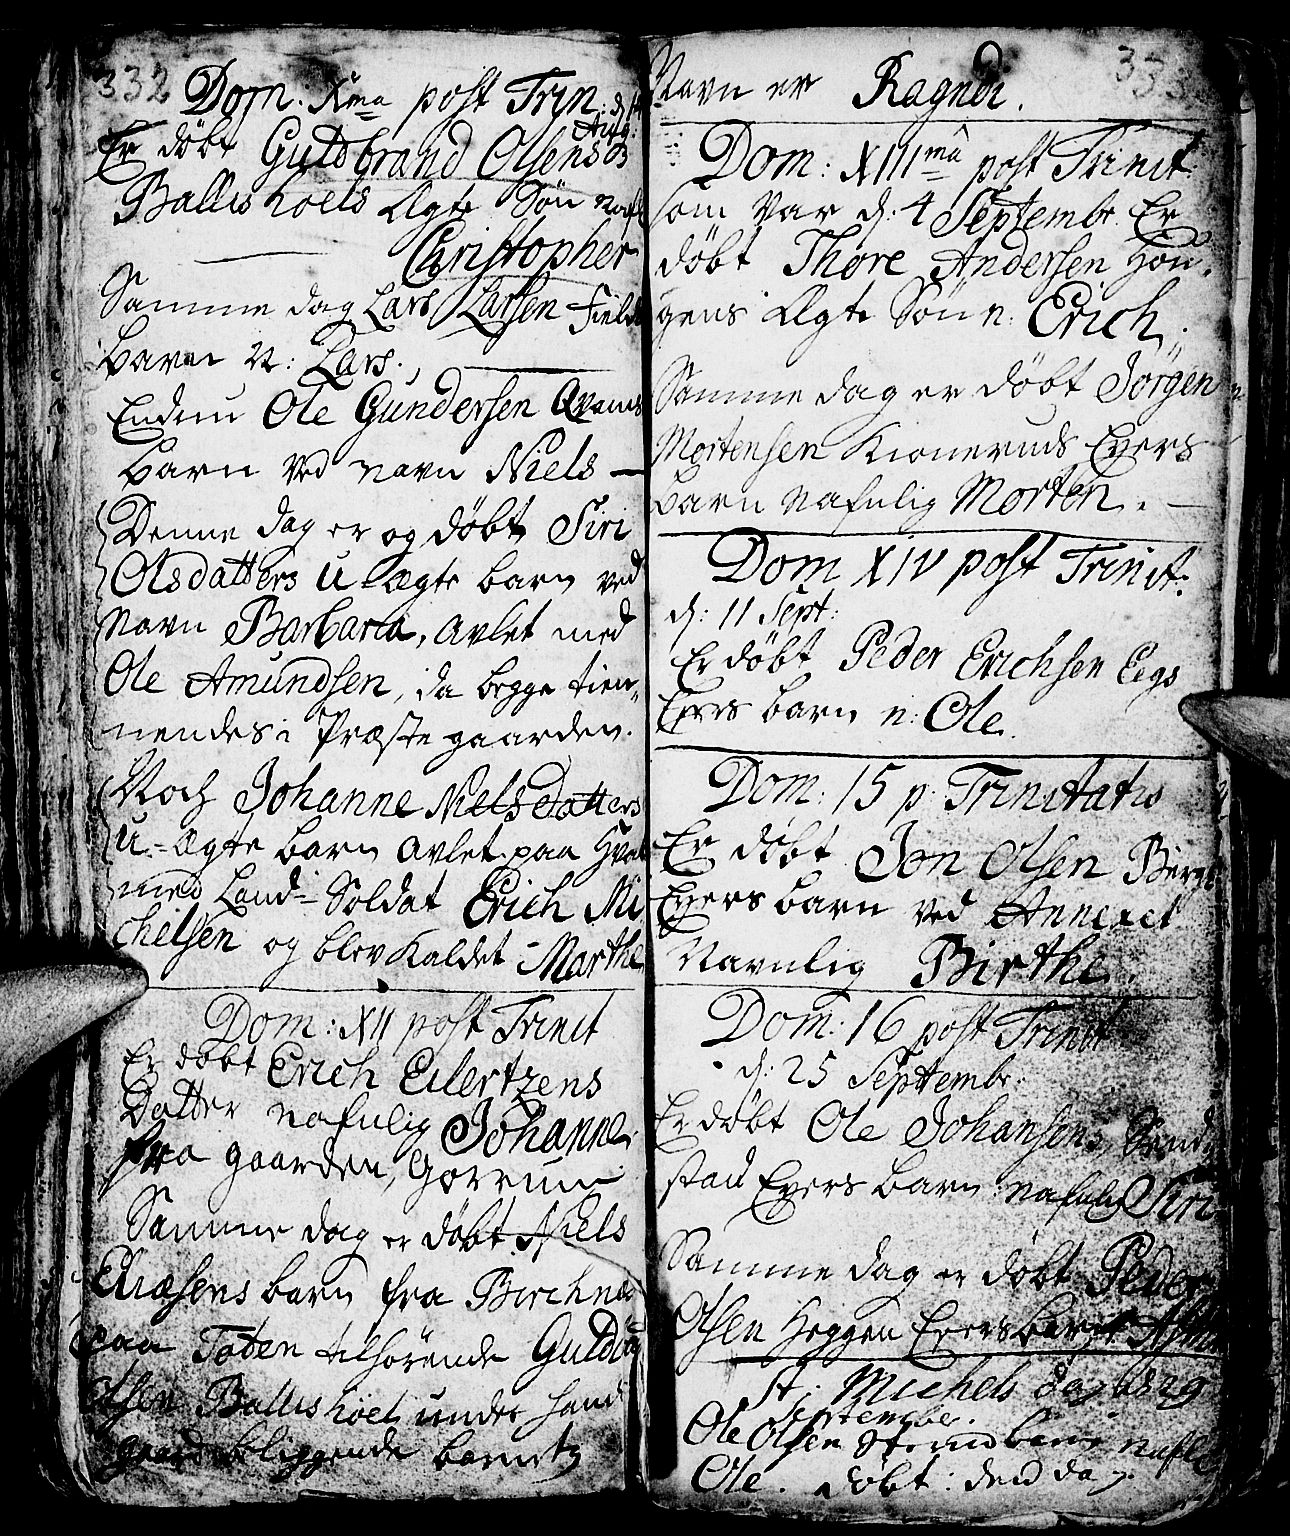 332
Dom. Xma post Trin:
Aug:
Er døbt Guldbrand Olsens
Ballishoels Ægte Søn
Christopher
Samme dag Lars Larsen
barn N: Lars.
Endnu Ole Gundersen Qvams
barn ved navn Niels
Denne dag er og døbt Siri
Olsdatters U-ægte barn ved
Navn Barbara, avlet med
Ole Amundsen, da begge tien„
nendes i Præstegaarden.
Noch Johanne Nielsdatters
U-ægte barn avlet paa
med Land-Soldat Erich Mi
chelsen og blev kaldet Marthe
Dom: XII post Trinit
Er døbt Erich Eilertzens
Datter nafnlig Johanne
fra gaarden,
Samme dag er døbt Niels
barn fra
paa Toten tilhørende
Olsen Ballishoel under
liggende
33
Navn er Ragndi.
Dom: XIIIma post Trinit
som var d: 4 Septembr. Er
døbt Thore Andersen Hou„
gens Ægte Søn n: Erich.
Samme dag er døbt Jörgen
Mortensen Kioneruds Eyers
barn nafnlig Morten.
Dom XIV post Trinit:
d: 11 Sept:
Er døbt Peder Erichsen Eegs
Eyers barn n: Ole.
Dom: 15 p. Trinitatis
Er døbt Jon Olsen
Eyers barn ved Annexet
Navnlig Birthe.
Dom: 16 post Trinit
d: 25 Septembr.
Er døbt Ole Johansen
stad Eyers barn nafnlig Siri
Samme dag er døbt Peder
Olsen Heggen Eyers barn
St: Michels dag d 29
Septembr.
Ole Olsen
Ole. døbt: den dag.